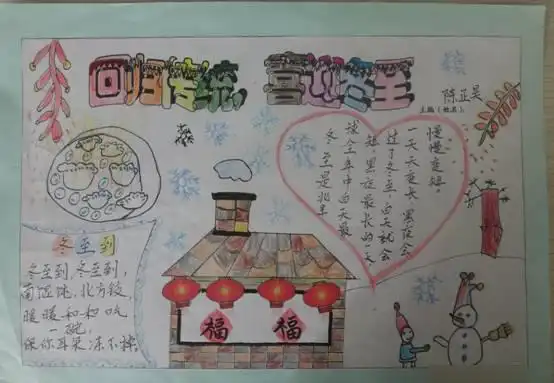 回归传统 喜迎冬至
陈正昊
主编(姓名):
冬至是北半
球全年中白天最
短、黑夜最长的一天,
过了冬至,白天就会
一天天变长,黑夜会
慢慢变短。
冬至到
冬至到,冬至到,
南馄饨,北方饺,
暖暖和和吃
一碗,
保你耳朵冻不掉
福
福